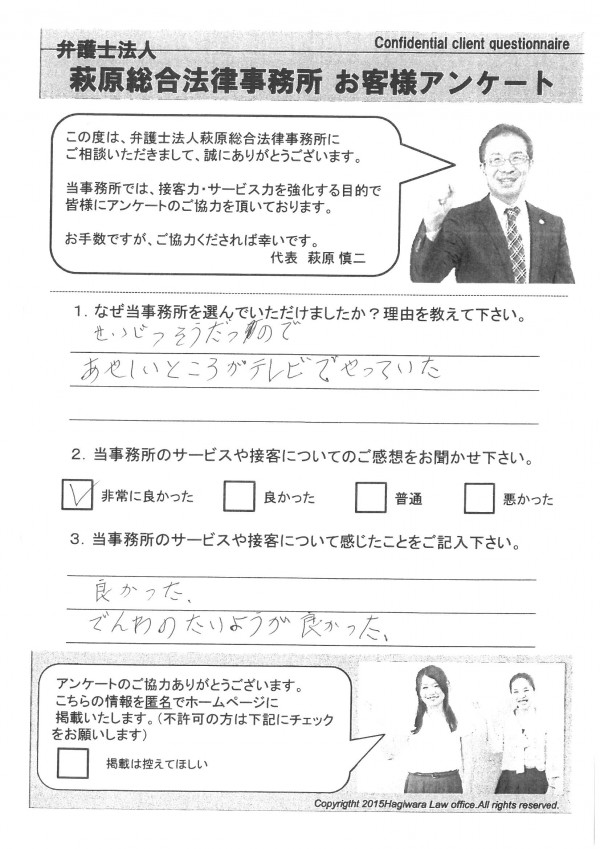 Confidential client questionnaire
弁護士法人
萩原総合法律事務所 お客様アンケート
この度は、弁護士法人萩原総合法律事務所に
ご相談いただきまして、誠にありがとうございます。
当事務所では、接客力・サービス力を強化する目的で
皆様にアンケートのご協力を頂いております。
お手数ですが、ご協力くだされば幸いです。
代表 萩原 慎二
1. なぜ当事務所を選んでいただけましたか？理由を教えて下さい。
せいじつそうだっ ので
あやしいところがテレビでやっていた
2. 当事務所のサービスや接客についてのご感想をお聞かせ下さい。
非常に良かった 良かった 普通 悪かった
3. 当事務所のサービスや接客について感じたことをご記入下さい。
良かった、
でんわのたいようが良かった、
アンケートのご協力ありがとうございます。
こちらの情報を匿名でホームページに
掲載いたします。（不許可の方は下記にチェック
をお願いします）
掲載は控えてほしい
Copyrigtht 2015Hagiwara Law office.All rights reserved.